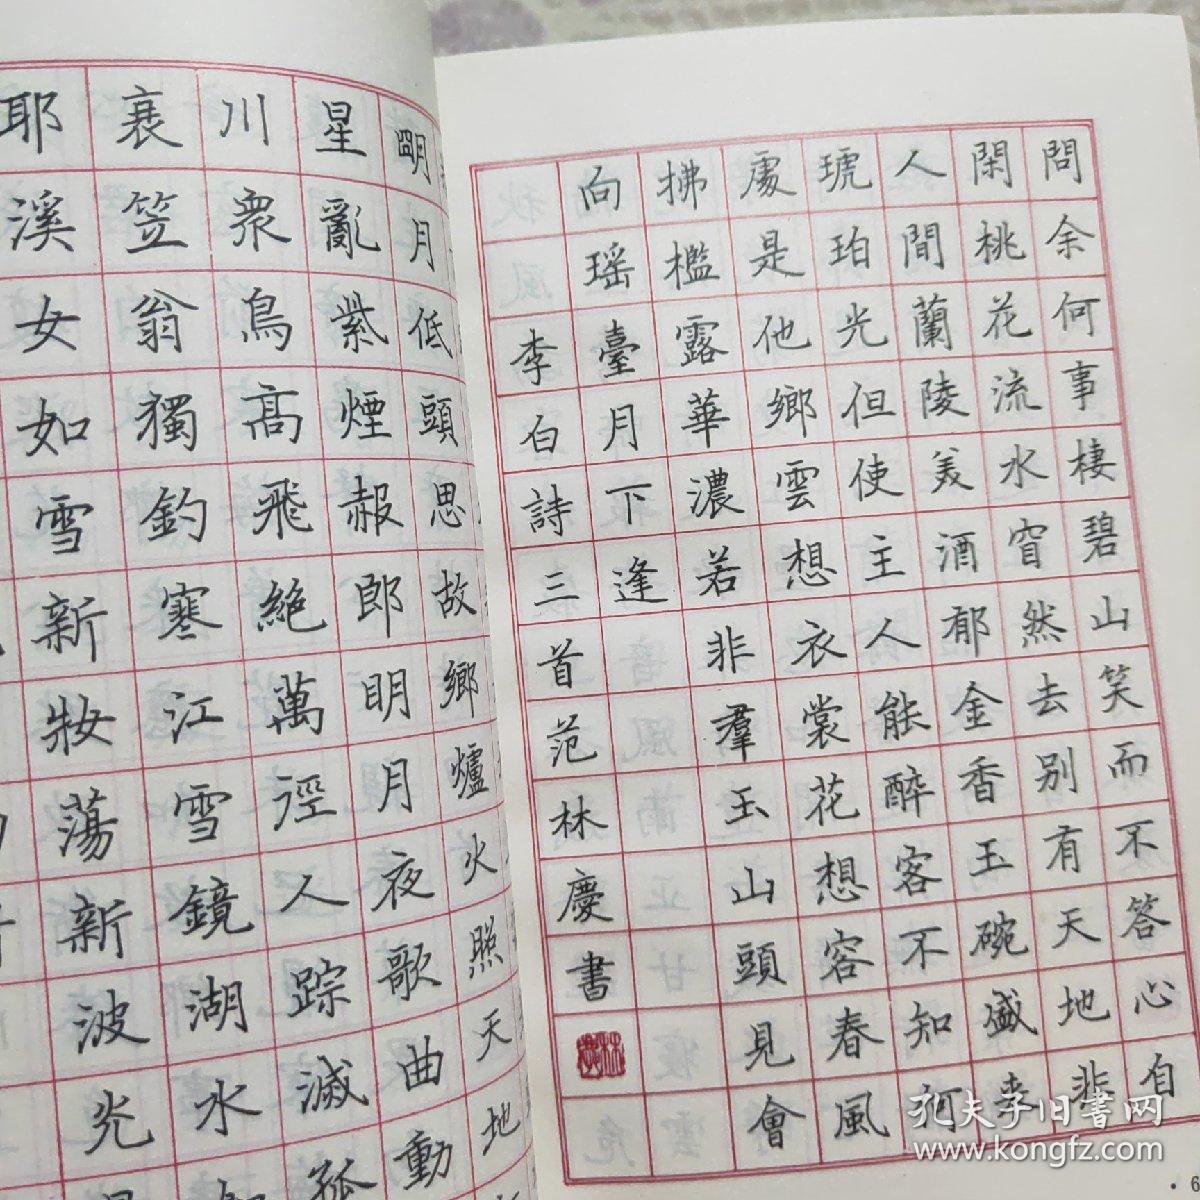 明月低頭思故鄉爐火照天地
星亂紫煙赧郎明月夜歌曲動
川衆鳥高飛絶萬徑人踪滅孤
蓑笠翁獨釣寒江雪鏡湖水
耶溪女如雪新妝蕩新波光
問余何事棲碧山笑而不答心自
閑桃花流水窅然去别有天地非
人間蘭陵美酒郁金香玉碗盛来
琥珀光但使主人能醉客不知何
處是他鄉雲想衣裳花想容春風
拂檻露華濃若非羣玉山頭見會
向瑶臺月下逢
李白詩三首范林慶書
孔夫子旧书网
www.kongfz.com